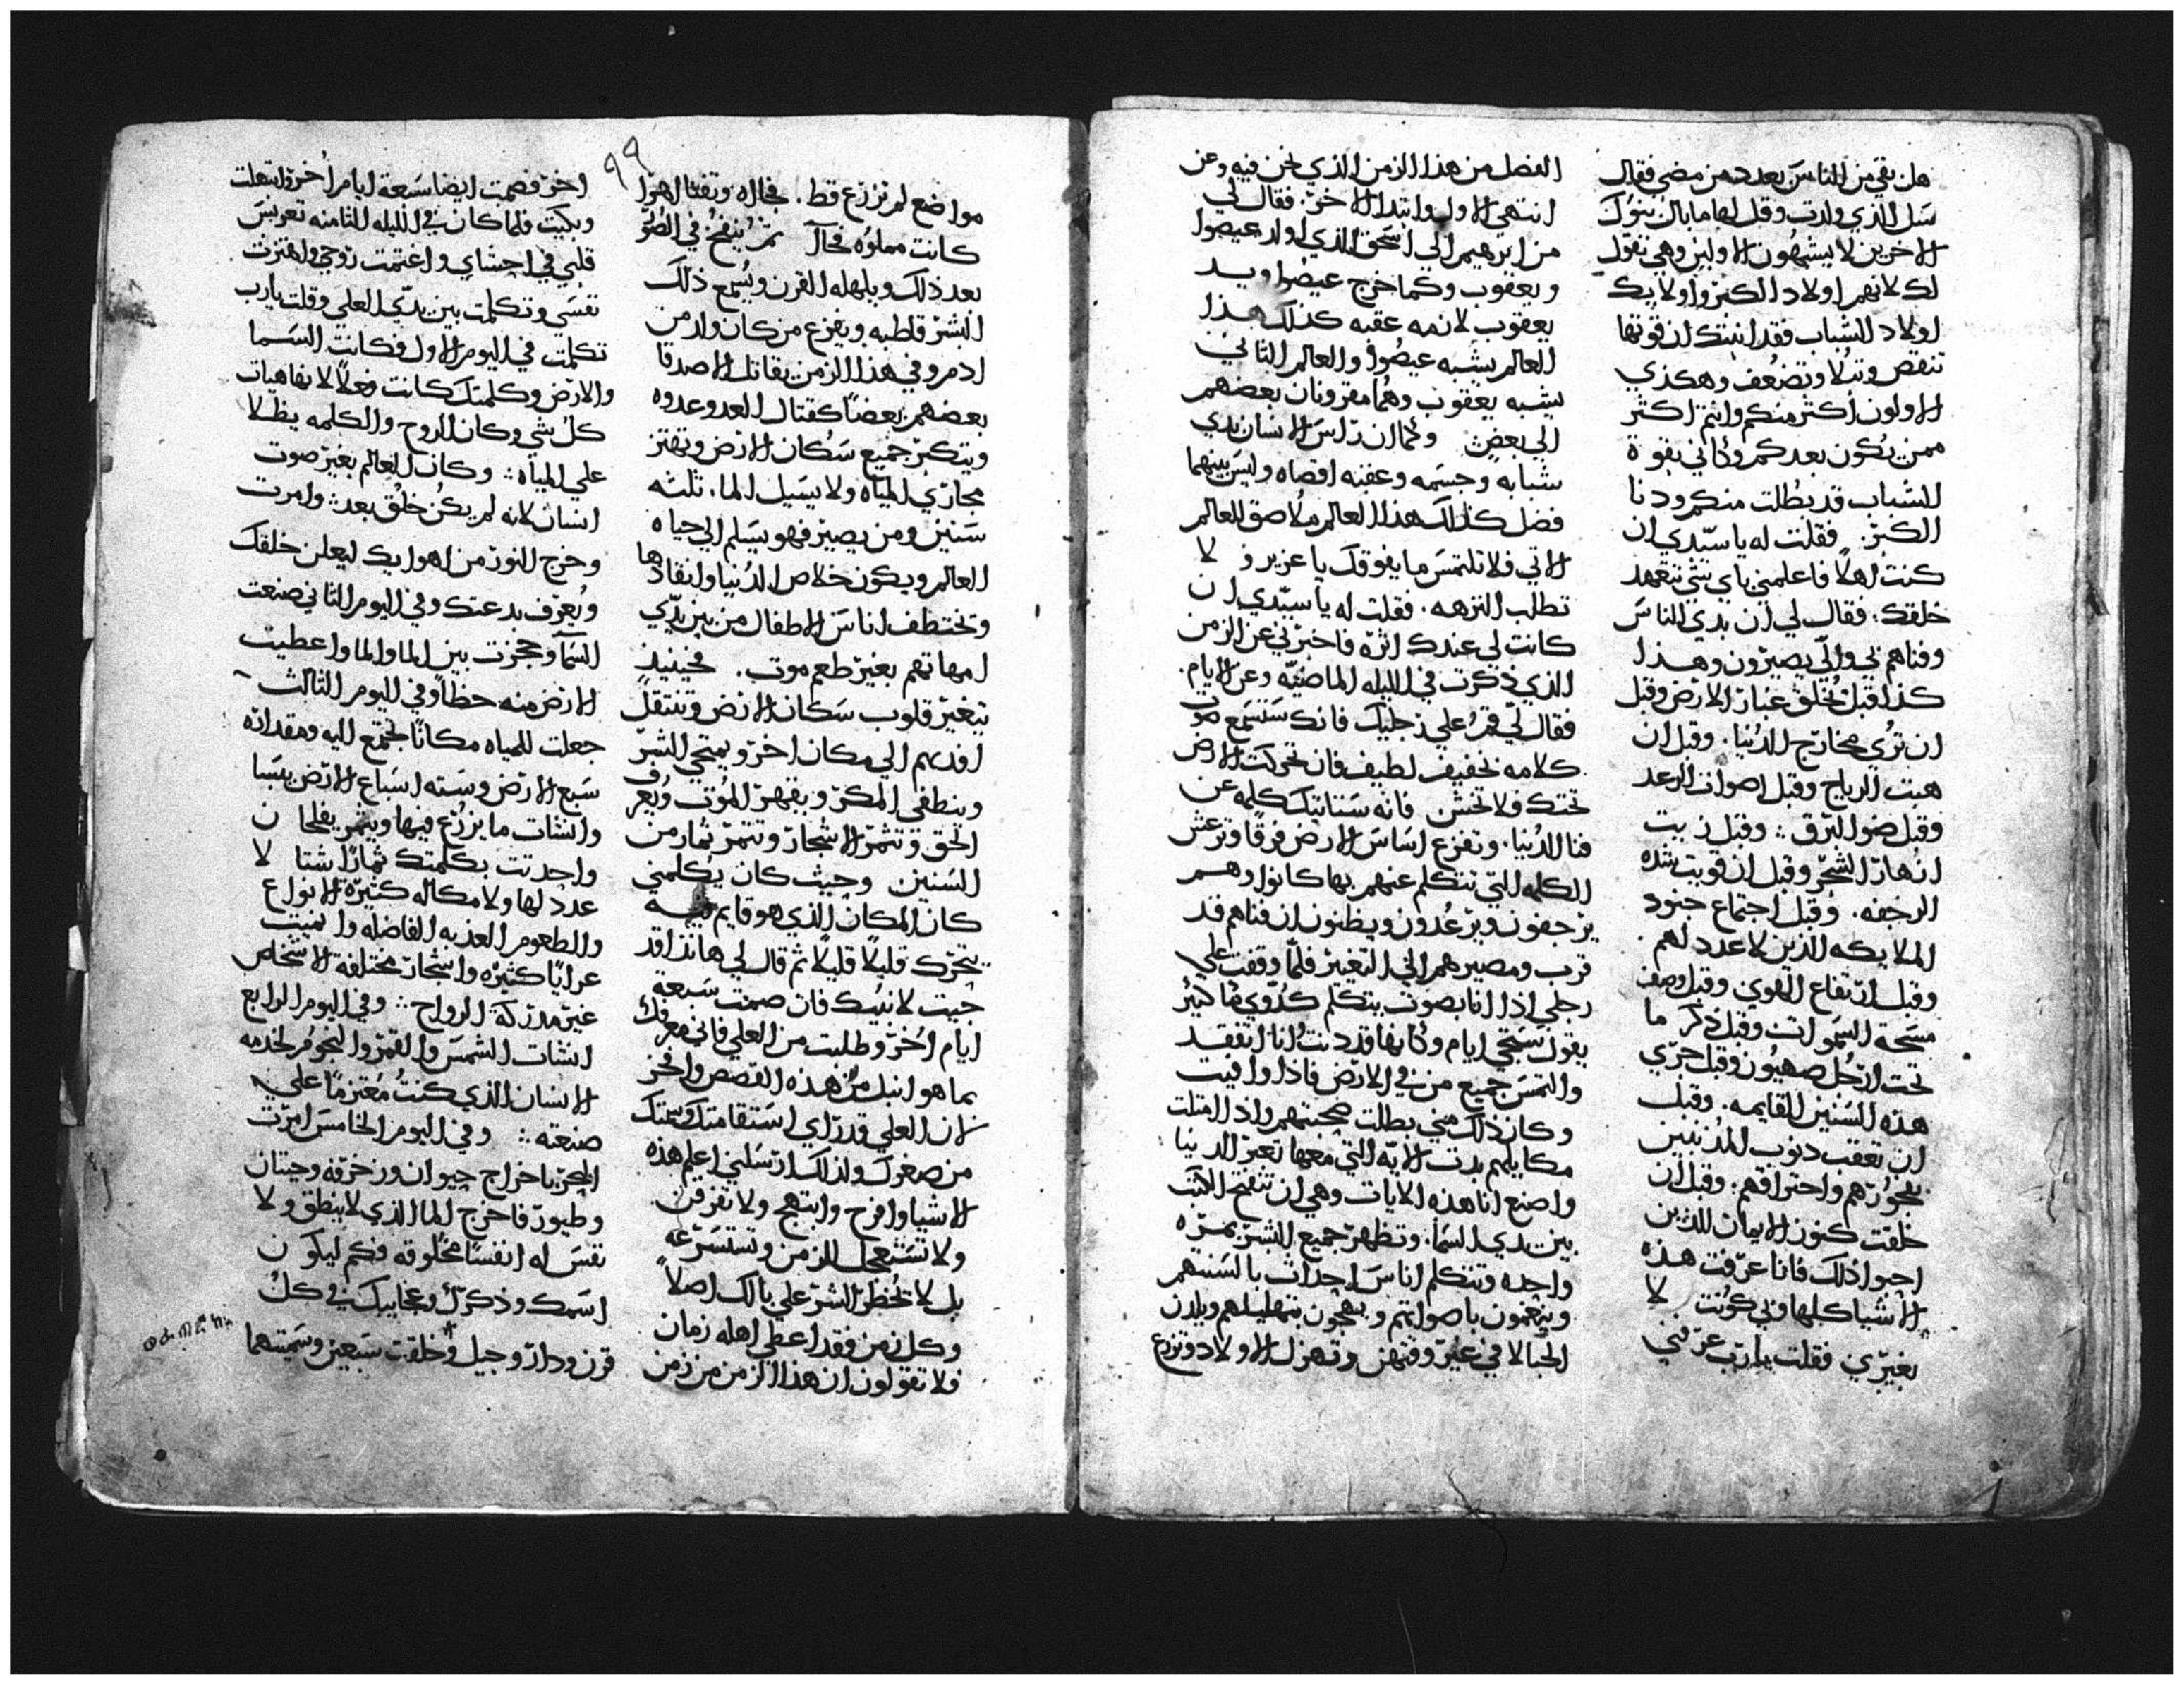 هل بقي من الناس بعدد من مضي فقال
سل الذي ولدت وقل لها ما بال بنوك
الاخرين لا يشبهون الاولين وهي تقول
لك لانهم اولاد الكبر واولايك
اولاد الشباب فقد انبتك ان قوتها
تنقص وتبلا وتضعف وهكذي
الاولون اكثر منكم وانتم اكثر
ممن يكون بعدكم وكاني بقوة
الشباب قد بطلت منكم ودنا
الكبر. فقلت له يا سيدي ان
كنت اهلاً فاعلمني باي شي تتعهد
خلقك. فقال لي ان بدي الناس
وفناهم بي والي يصيرون وهذا
كذا قبل تخلق غبار الارض وقبل
ان تري مخارج الدنيا. وقبل ان
هبت الرياح وقبل اصوات الرعد
وقبل ضو البرق ⁘ وقبل زينت
انهار الشجر وقبل ان قويت شده
الرجفه. وقبل اجتماع جنود
الملايكه الذين لا عدد لهم.
وقبل ارتفاع القوي وقبل وصف
مسحة السموات وقبل ذكر ما
تحت ارجل صهيون وقبل جري
هذه السنين القايمه. وقبل
ان تعقب دنوب المذنبين
بفجورهم واحتراقهم. وقبل ان
خلقت كنوز الايمان للذين
احبوا ذلك فانا عرفت هذه
الاشيا كلها وبي كونت لا
بغيري فقلت يارب عرفني
الفصل من هذا الزمن الذي نحن فيه وعن
انتهي الاول وابتدا الاخر. فقال لي
من ابرهيم الي اسحق الذي اولد عيصوا
ويعقوب وكما خرج عيصوا ويد
يعقوب لازمه عقبه كذلك هذا
العالم يشبه عيصوا والعالم الثاني
يشبه يعقوب وهما مقرونان بعضهم
الي بعض وكما ان راس الانسان بدي
شبابه وجسمه وعقبه اقصاه وليس بينهما
فصل كذلك هذا العالم ملاصق العالم
الاتي فلا تلتمس ما يفوقك يا عزير و لا
تطلب النزهه. فقلت له يا سيدي ان
كانت لي عندك اثره فاخبرني عن الزمن
الذي ذكرت في الليله الماضيه وعن الايام.
فقال لي قم علي رجليك فانك ستسمع صوت
كلامه بخفيف لطيف فان تحركت الارض
تحتك فلا تخش فانه ستاتيك كلمه عن
فنا الدنيا. وتفزع اساس الارض فرقا وترعش
الكلمه التي تتكلم عنهم بها كانوا وهم
يرجفون ويرعدون ويظنون ان فناهم قد
قرب ومصيرهم الي التغير فلما وقفت علي
رجلي اذا انا بصوت يتكلم كدوي ما كثير
يقول ستجي ايام وكانها قد دنت انا اتفقد
والتمس جميع من في الارض فاذا وافيت
وكان ذلك مني بطلت صحتهم واذا امتلت
مكاييلهم بدت الايه التي معها تعبر الدنيا
واصنع انا هذه الايات وهي ان تفتح الكتب
بين يدي السما. وتظهر جميع البشر بمره
واحده وتتكلم اناس احداث بالسنتهم
وينعمون باصواتهم ويهجون بتهليلهم ويلدن
الحبالا في غير وقتهن وتهزل الاولاد وتزرع
٩٩
مواضع لم تزرع قط. فجاه وتفتا الاهوا
كانت مملوه فجآ ثم ينفخ في الصور
بعد ذلك ويلهله القرن ويسمع ذلك
البشر قاطبه ويفزع من كان ولد من
ادم وفي هذا الزمن يقاتل الاصدقا
بعضهم بعضا كقتال العدو عدوه
ويتكبر جميع سكان الارض وتهتز
مجاري المياه ولا يسيل الما. ثلثه
سنين ومن يصبر فهو يسلم الي حياه
العالم ويكون خلاص الدنيا وانقادها
وتختطف اناس الاطفال من بين يدي
امهاتهم بغير طعم موت. فحينيذ
تتغير قلوب سكان الارض وتنتقل
افدتهم الي مكان اخر ويمتحي الشر
وينطفي المكر ويقهر الموت ويعرف
الحق وتثمر الاشجار وتتمر ثمار من
السنين وحيث كان يكلمني
كان المكان الذي هو قايم فيه
يتحرك قليلاً قليلاً ثم قال لي هانذا قد
جيت لانبيك فان صمت سبعة
ايام اخر وطلبت من العلي فاني معرفك
بما هو انبل من هذه القصص وافخر
لان العلي قد راي استقامتك وسمتك
من صغرك ولذلك ارسلني اعلم هذه
الاشيا وافرح وابتهج ولا تفزعن
ولا تستعجل الزمن وتستسرعه
بل لا تخطر الشر علي بالك اصلاً
وكل زمن فقد اعطي اهله زمان
فلا تقولون ان هذا الزمن من زمن
اخر فصمت ايضا سبعة ايام اخر وابتهلت
وبكيت فلما كان في الليله الثامنه تعربس
قلبي في احشاي واغتمت روحي واهتزت
نفسي وتكلمت بين يدي العلي وقلت يارب
تكلمت في اليوم الاول فكانت السما
والارض وكلمتك كانت فعلاً لانهاهيات
كل شي وكان الروح والكلمه يظلا
علي المياه ⁘ وكان العالم بغير صوت
انسان لانه لم يكن خلق بعد ⁘ وامرت
وخرج النور من اهوايك ليعلن خلقك
ويعرف بدعتك وفي اليوم الثاني صنعت
السما وحجزت بين الما والما واعطيت
الارض منه حظا وفي اليوم الثالث
جعلت للمياه مكانا تجتمع اليه ومقداره
سبع الارض وسته اسباع الارض يبسا
وانشات ما يزرع فيها ويثمر يفلحان
واحدتت بكلمتك ثمارا شتا لا
عدد لها ولا مكاله كثيرة الانواع
والطعوم العذبه الفاضله وانميت
عرايا كثيره واشجار مختلفة الاشخاص
غير مدركة الرواح ⁘ وفي اليوم الرابع
انشات الشمس والقمر والنجوم لخدمه
الانسان الذي كنت معتزما علي
صنعته ⁘ وفي اليوم الخامس امرت
البحر باخراج حيوان وزخرفه وحيتان
وطيور فاخرج الما الذي لا ينطق ولا
نفس له انفسا مخلوقه فكم ليكون
اسمك وذكرك وعجايبك في كل
قرن ودار وجيل وخلقت سبعين وسميتهما